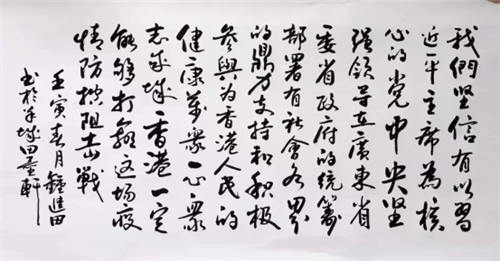 我們坚信有以習
近平主席為核
心的党中央坚
强領导在廣東省
委省政府的统籌
部署有社會各界
的鼎力支持和积极
参與为香港人民的
健康萬衆一心衆
志成城香港一定
能够打赢这场疫
情防控阻击战
壬寅春月鍾進田
书於羊城田童軒